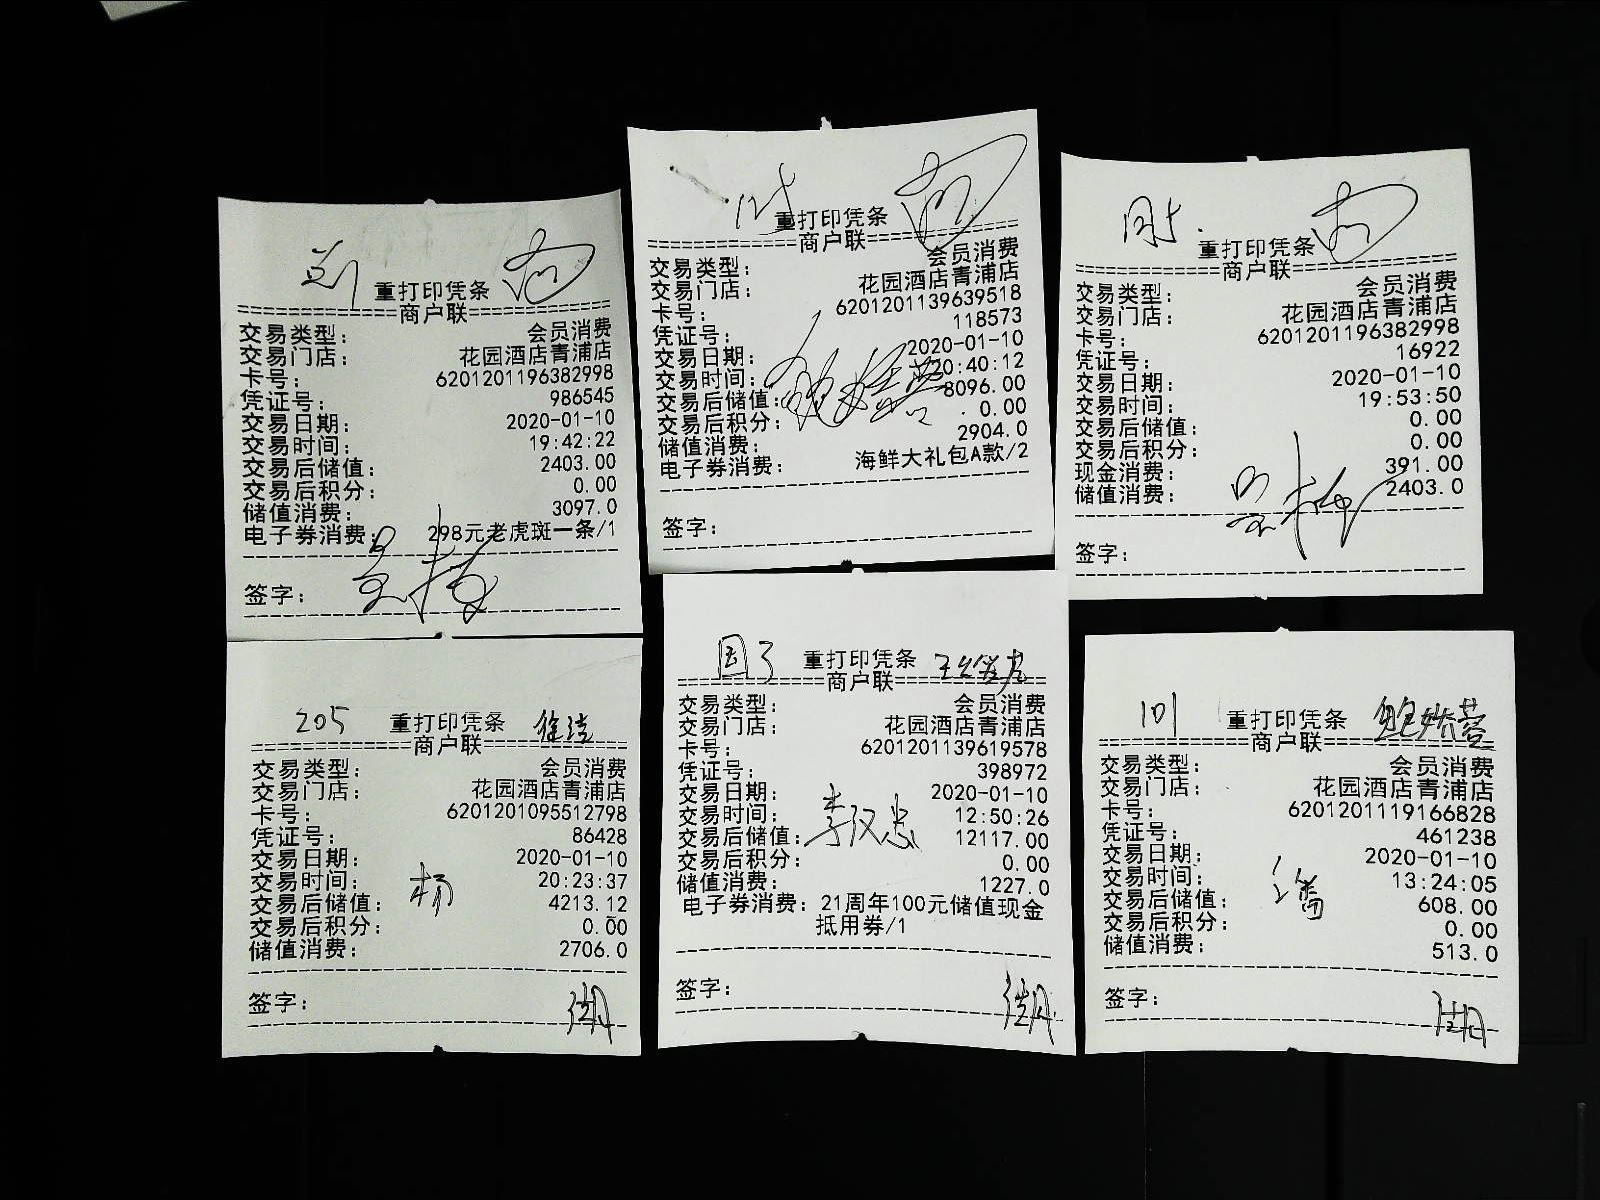 重打印凭条
商户联
交易类型： 会员消费
交易门店： 花园酒店青浦店
卡号： 6201201196382998
凭证号： 986545
交易日期： 2020-01-10
交易时间： 19:42:22
交易后储值： 2403.00
交易后积分： 0.00
储值消费： 3097.0
电子券消费： 298元老虎斑一条/1
签字：
重打印凭条
商户联
交易类型： 会员消费
交易门店： 花园酒店青浦店
卡号： 6201201139639518
凭证号： 118573
交易日期： 2020-01-10
交易时间： 20:40:12
交易后储值： 8096.00
交易后积分： 0.00
储值消费： 2904.0
电子券消费： 海鲜大礼包A款/2
签字：
重打印凭条
商户联
交易类型： 会员消费
交易门店： 花园酒店青浦店
卡号： 6201201196382998
凭证号： 16922
交易日期： 2020-01-10
交易时间： 19:53:50
交易后储值： 0.00
交易后积分： 0.00
现金消费： 391.00
储值消费： 2403.0
签字：
205 重打印凭条
商户联
交易类型： 会员消费
交易门店： 花园酒店青浦店
卡号： 6201201095512798
凭证号： 86428
交易日期： 2020-01-10
交易时间： 20:23:37
交易后储值： 4213.12
交易后积分： 0.00
储值消费： 2706.0
签字：
国3 重打印凭条
商户联
交易类型： 会员消费
交易门店： 花园酒店青浦店
卡号： 6201201139619578
凭证号： 398972
交易日期： 2020-01-10
交易时间： 12:50:26
交易后储值： 李汉忠 12117.00
交易后积分： 0.00
储值消费： 1227.0
电子券消费： 21周年100元储值现金
抵用券/1
签字：
101 重打印凭条
商户联
交易类型： 会员消费
交易门店： 花园酒店青浦店
卡号： 6201201119166828
凭证号： 461238
交易日期： 2020-01-10
交易时间： 13:24:05
交易后储值： 608.00
交易后积分： 0.00
储值消费： 513.0
签字：